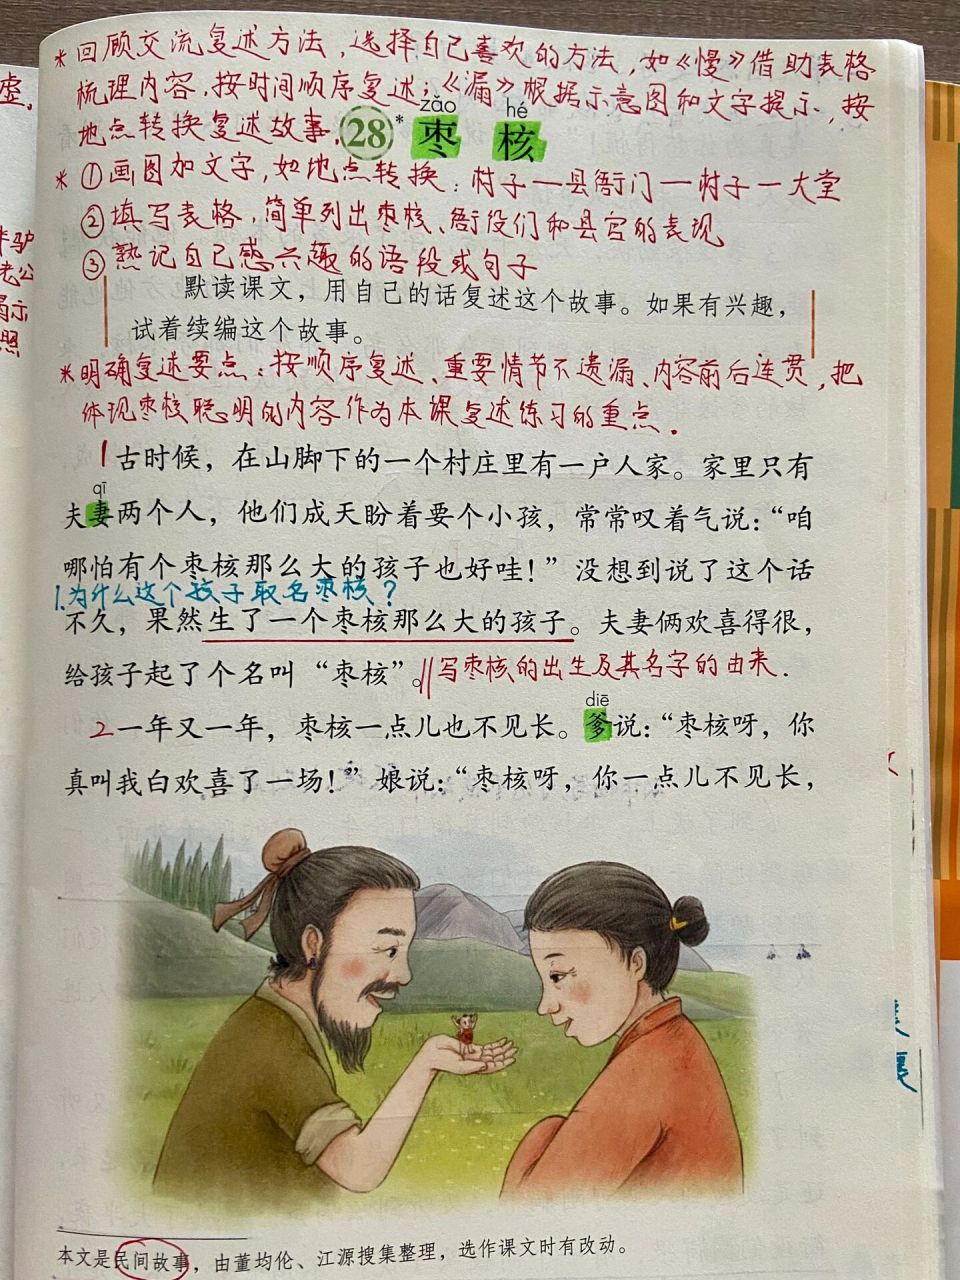 *回顾交流复述方法，选择自己喜欢的方法，如《慢》借助表格
梳理内容，按时间顺序复述；《漏》根据示意图和文字提示，按
地点转换复述故事。
zǎo hé
28* 枣核
*①画图加文字，如地点转换：村子—县衙门—村子—大堂
②填写表格，简单列出枣核、衙役们和县官的表现
③熟记自己感兴趣的语段或句子
默读课文，用自己的话复述这个故事。如果有兴趣，
试着续编这个故事。
*明确复述要点：按顺序复述、重要情节不遗漏、内容前后连贯，把
体现枣核聪明的内容作为本课复述练习的重点。
1古时候，在山脚下的一个村庄里有一户人家。家里只有
qī
夫妻两个人，他们成天盼着要个小孩，常常叹着气说：“咱
哪怕有个枣核那么大的孩子也好哇！”没想到说了这个话
1.为什么这个孩子取名枣核？
不久，果然生了一个枣核那么大的孩子。夫妻俩欢喜得很，
给孩子起了个名叫“枣核”。∥写枣核的出生及其名字的由来.
diē
2一年又一年，枣核一点儿也不见长。爹说：“枣核呀，你
真叫我白欢喜了一场！”娘说：“枣核呀，你一点儿不见长，
本文是民间故事，由董均伦、江源搜集整理，选作课文时有改动。
虚.
驴
老公
示
照